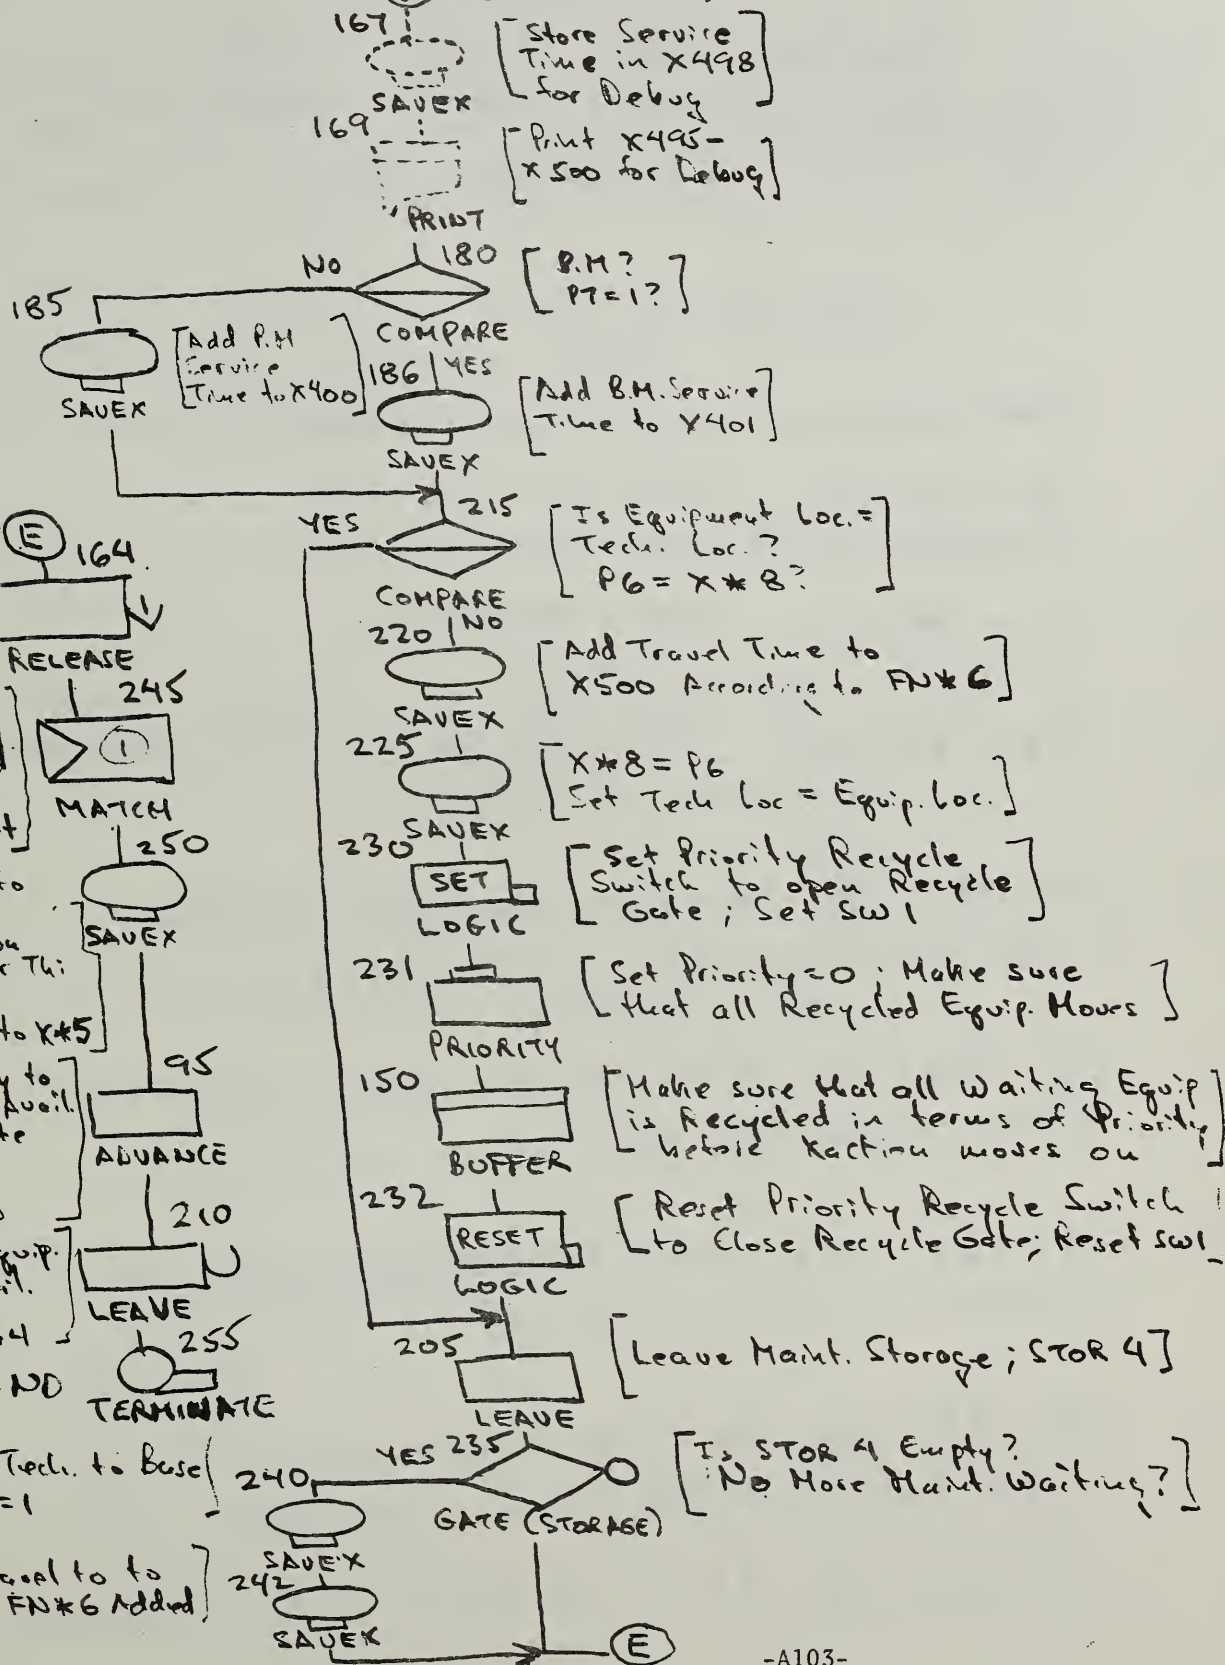 167
Store Service
Time in X498
for Debug
SAVEX
169
Print X495-
X500 for Debug
PRINT
180
NO
B.M?
P7=1?
COMPARE
YES
185
Add P.M
Service
Time to X400
SAVEX
186
Add B.M. Service
Time to X401
SAVEX
215
YES
Is Equipment Loc.=
Tech. Loc.?
P6 = X*8?
COMPARE
NO
220
Add Travel Time to
X500 According to FN*6
SAVEX
225
X*8 = P6
Set Tech Loc = Equip. Loc.
SAVEX
230
SET
LOGIC
Set Priority Recycle
Switch to open Recycle
Gate; Set SW1
231
Set Priority=0; Make sure
that all Recycled Equip. Moves
PRIORITY
150
Make sure that all Waiting Equip
is Recycled in terms of Priority
before Xaction moves on
BUFFER
232
RESET
LOGIC
Reset Priority Recycle Switch
to Close Recycle Gate; Reset SW1
205
Leave Maint. Storage; STOR 4
LEAVE
235
YES
Is STOR 4 Empty?
No More Maint. Waiting?
GATE (STORAGE)
240
SAVEX
242
SAVEX
E
E
164
1
RELEASE
245
1
MATCH
250
SAVEX
95
ADVANCE
210
LEAVE
255
TERMINATE
to
to X*5
to
Avail.
Tech. to Base
=1
to
FN*6 Added
-A103-